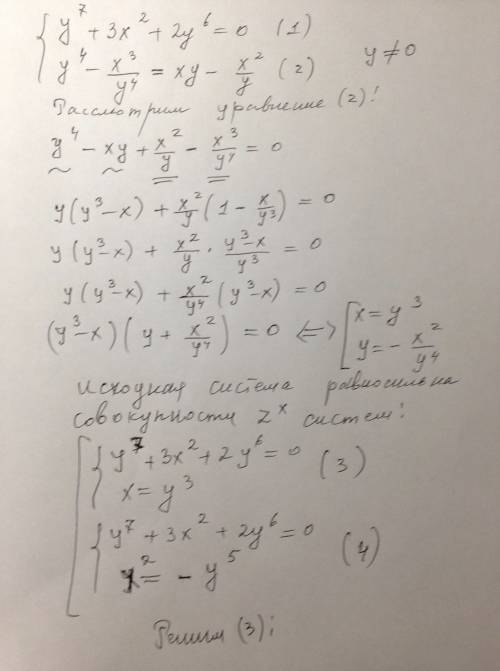 { y⁷ + 3x² + 2y⁶ = 0 (1)
{ y⁴ - x³/y⁴ = xy - x²/y (2) y ≠ 0
Рассмотрим уравнение (2):
y⁴ - xy + x²/y - x³/y⁴ = 0
y(y³-x) + x²/y (1 - x/y³) = 0
y(y³-x) + x²/y · (y³-x)/y³ = 0
y(y³-x) + x²/y⁴ (y³-x) = 0
(y³-x)(y + x²/y⁴) = 0 <=> [ x = y³
[ y = - x²/y⁴
исходная система равносильна
совокупности 2ˣ систем:
[ { y⁷ + 3x² + 2y⁶ = 0 (3)
{ x = y³
{ y⁷ + 3x² + 2y⁶ = 0 (4)
{ x² = - y⁵
Решим (3):